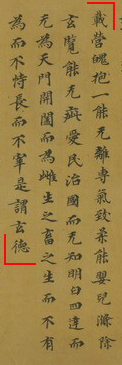 載營魄抱一能无離專氣致柔能嬰兒滌除
玄覽能无疵愛民治國而无知明白四達而
无為天門開闔而為雌生之畜之生而不有
為而不恃長而不宰是謂玄德